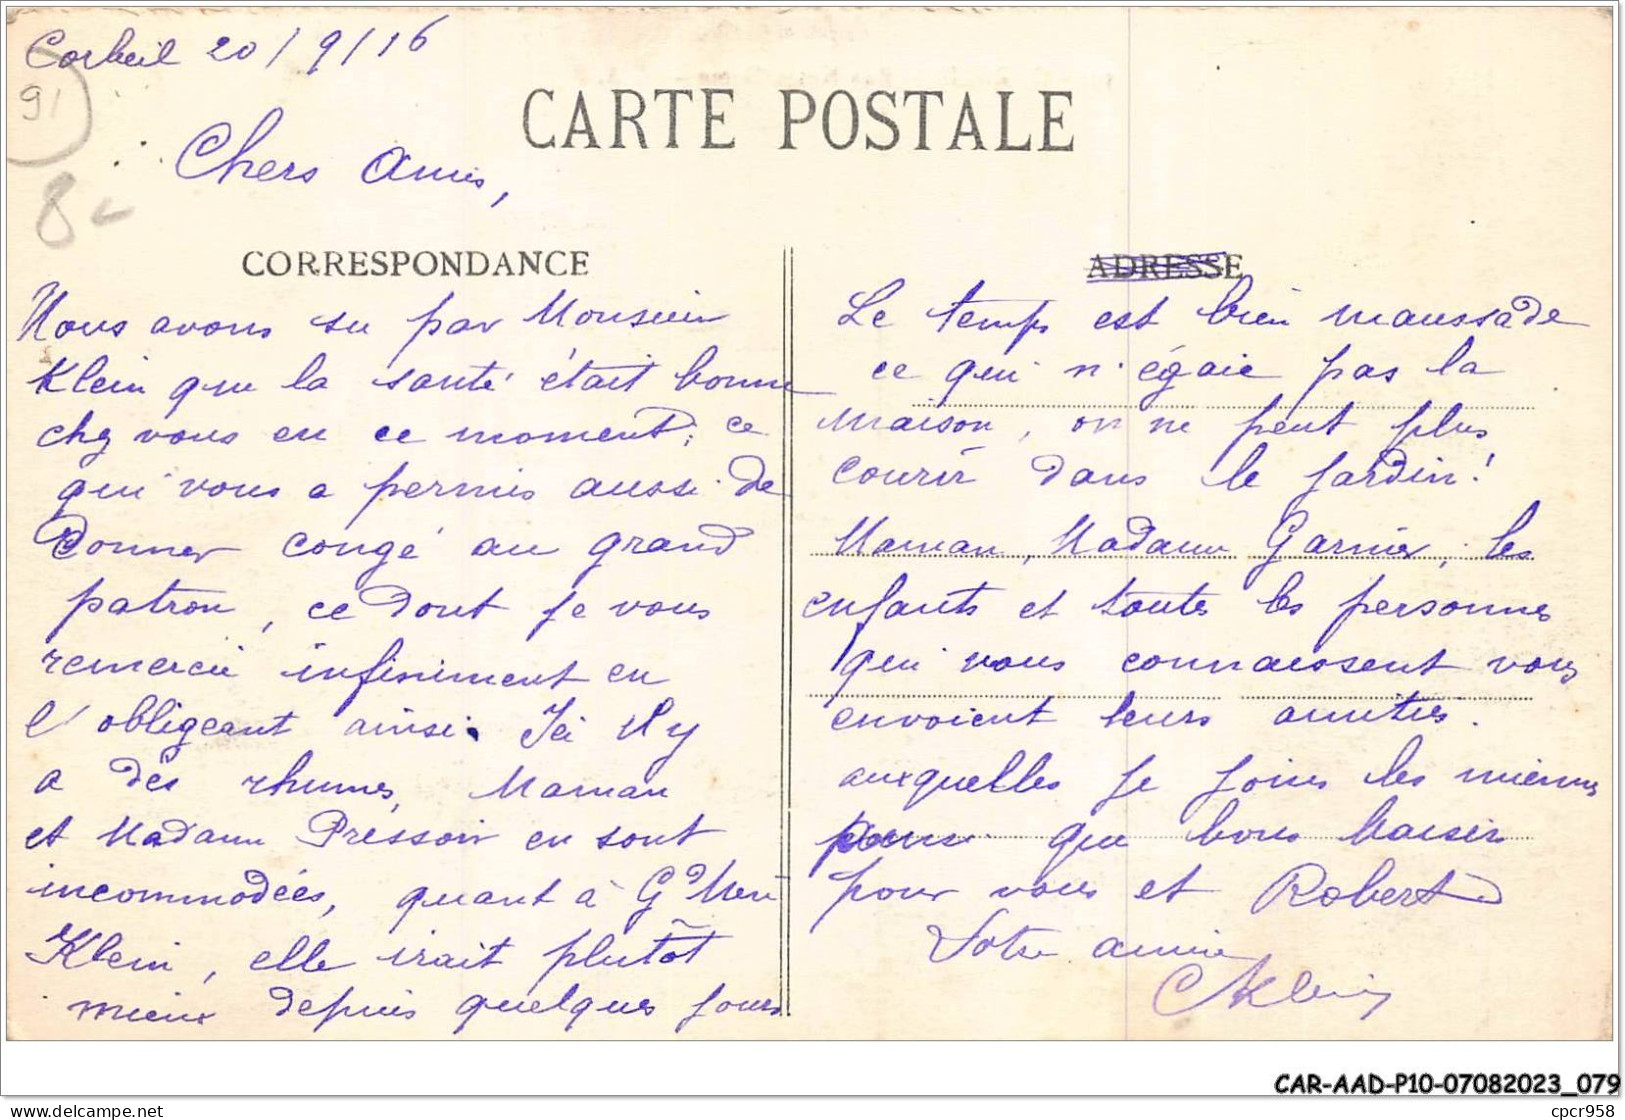 Corbeil 20/9/16
91
CARTE POSTALE
Chers Amis,
8
CORRESPONDANCE
Nous avons su par Monsieur
Klein que la santé était bonne
chez vous en ce moment; ce
qui vous a permis aussi de
donner congé au grand
patron, ce dont je vous
remercie infiniment en
l'obligeant ainsi. Ici il y
a des rhumes, Maman
et Madame Pressoir en sont
incommodées, quant à Gd Mère
Klein, elle irait plutôt
mieux depuis quelques jours
ADRESSE
Le temps est bien maussade
ce qui n'égaie pas la
maison, on ne peut plus
courir dans le jardin!
Maman, Madame Garnier, les
enfants et toutes les personnes
qui vous connaissent vous
envoient leurs amitiés.
auxquelles je joins les miennes
que bons baisers
pour vous et Robert
Votre amie
CKlein
CAR-AAD-P10-07082023_079
cpcr958